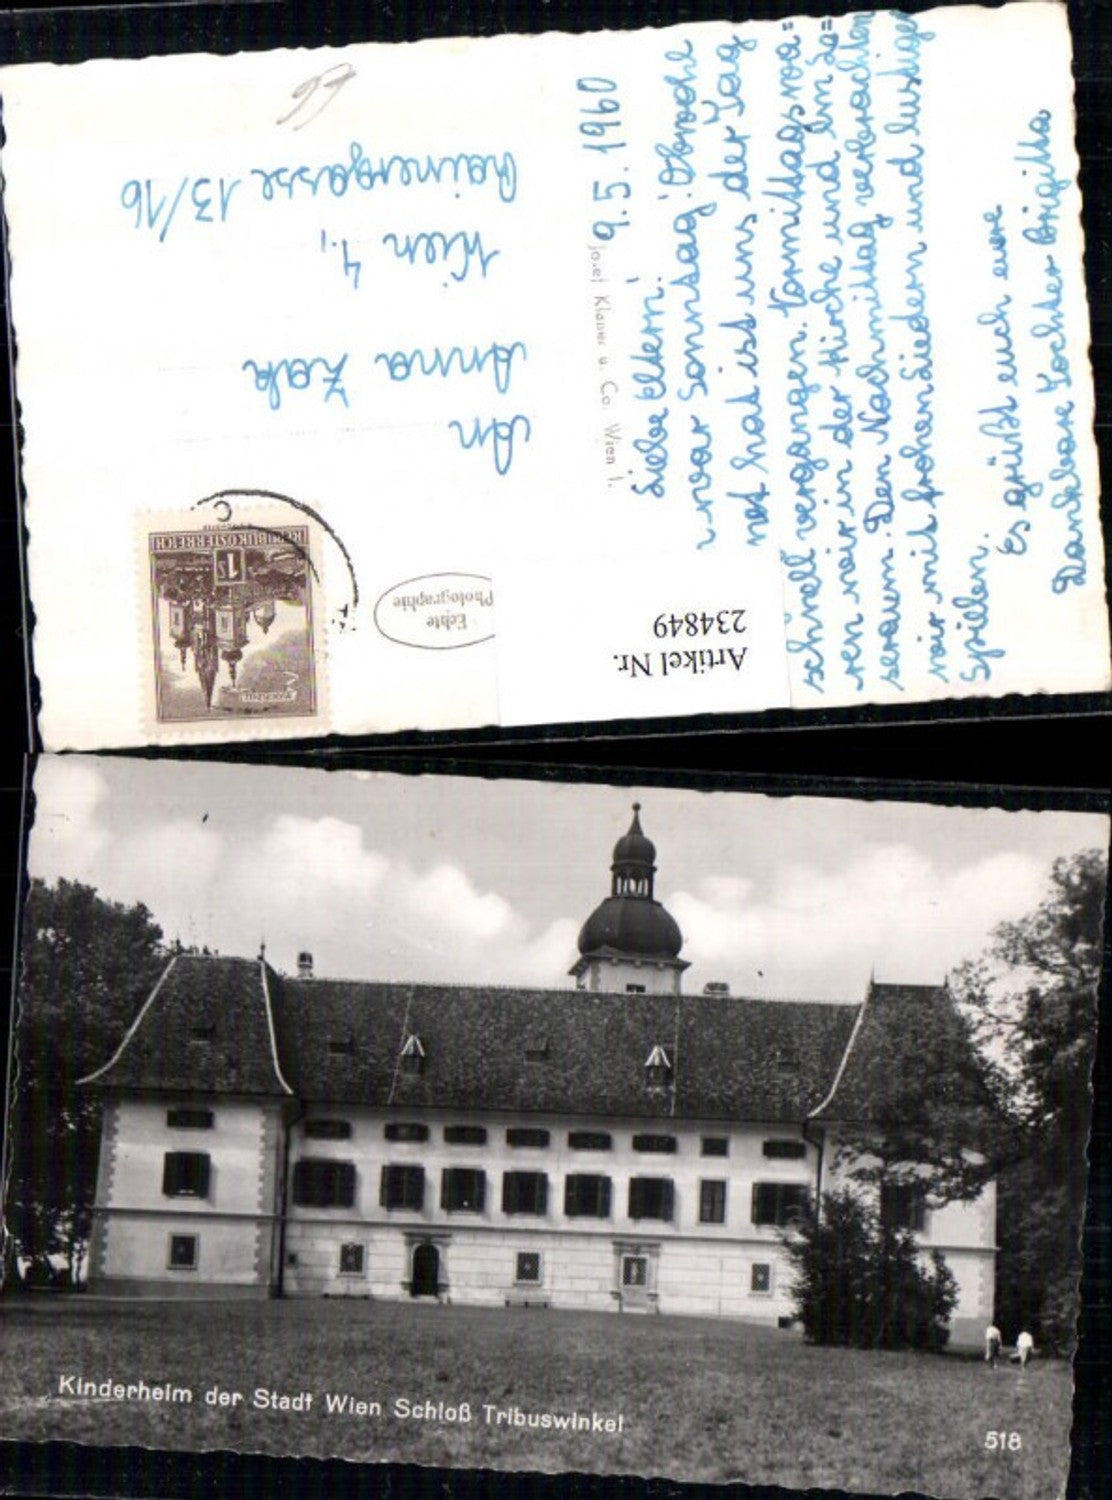 55
An
Anna Zak
Wien 4.,
Rainergasse 13/16
REPUBLIK ÖSTERREICH
1 S
Echte
Photographie
Artikel Nr.
234849
Josef Klauer u. Co. Wien I.
9. 5. 1960
Liebe Eltern!
war Sonntag. Obwohl
hat ist uns der Tag
schnell vergangen. Vormittags wa=
ren wir in der Kirche und im Le=
seraum. Den Nachmittag verbrachten
wir mit frohen Liedern und lustigen
Spielen.
Es grüßt euch eure
Dankbare Tochter Brigitta
Kinderheim der Stadt Wien Schloß Tribuswinkel
518